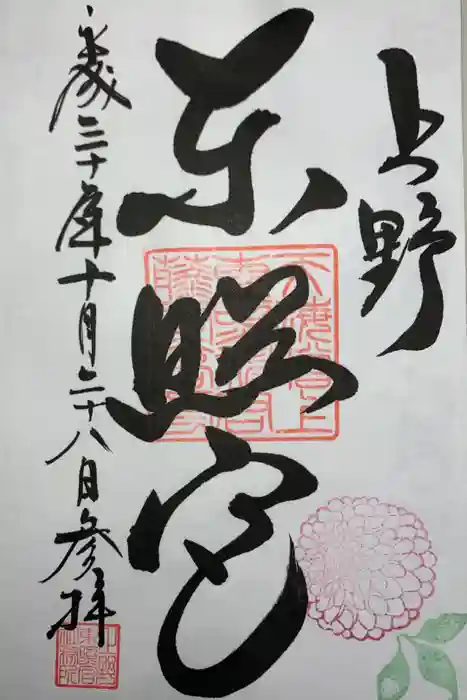 上野
東照宮
平成三十年十月二十八日参拝